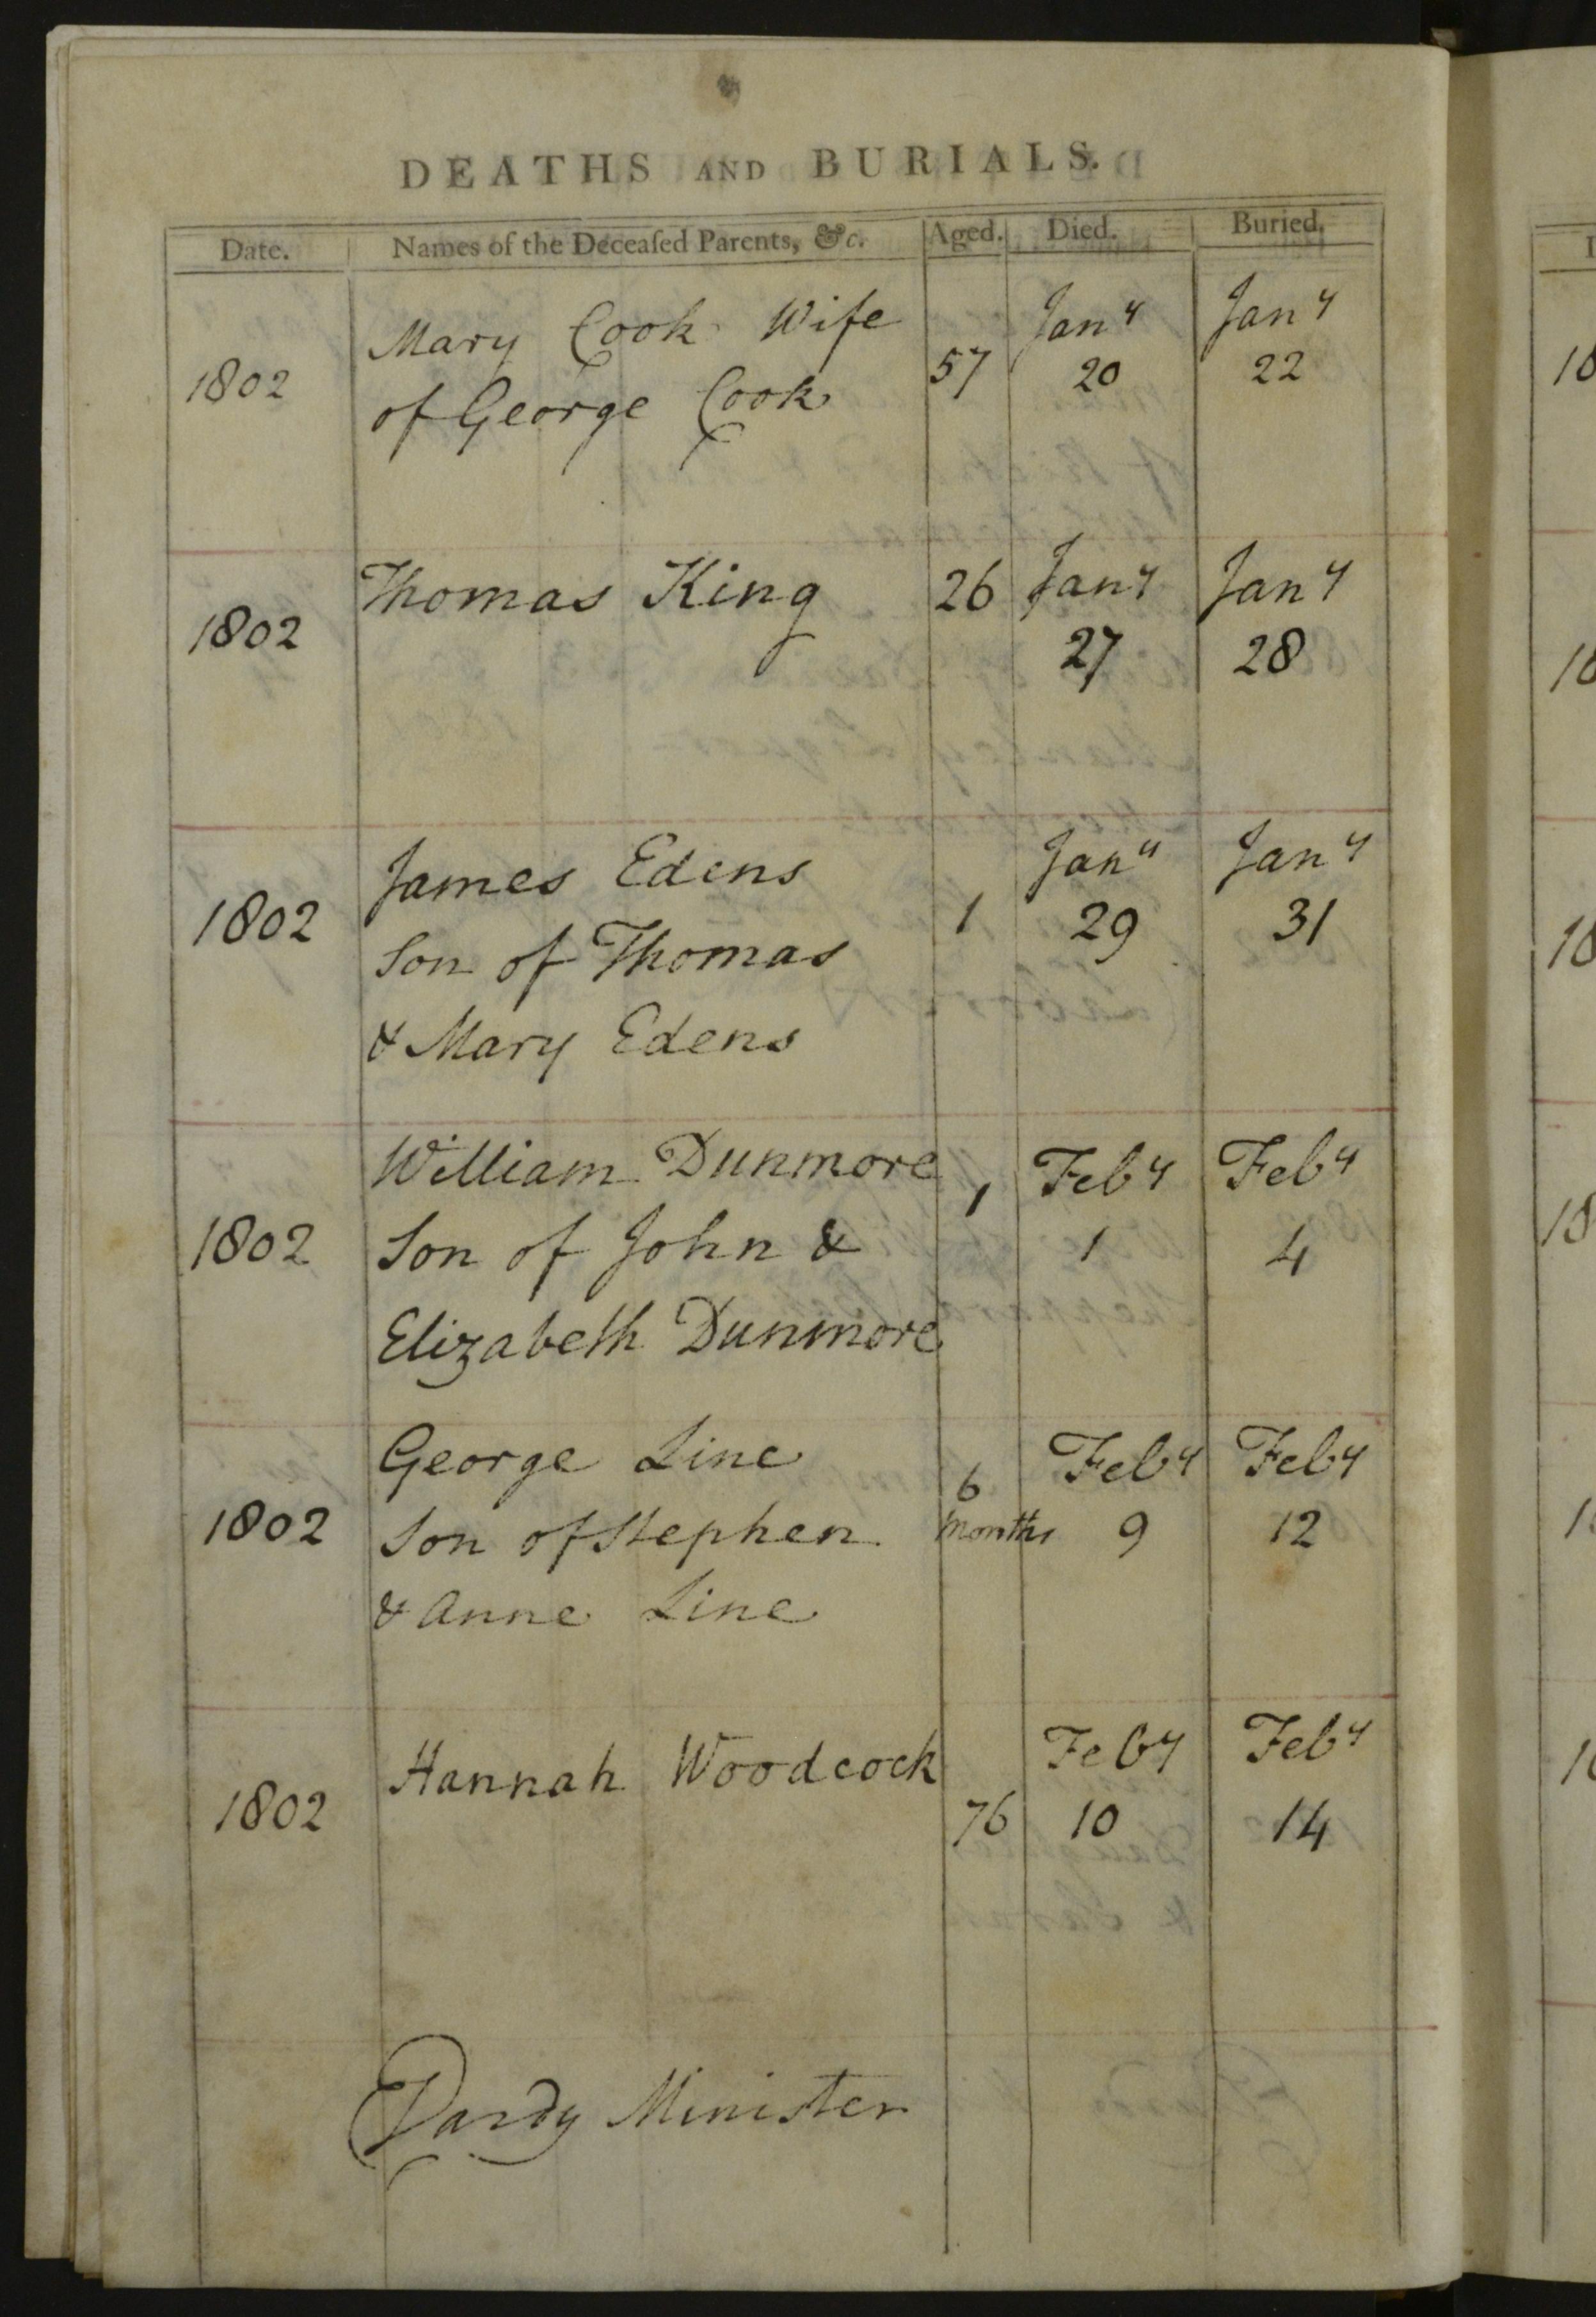 DEATHS AND BURIALS.
Date. Names of the Deceaſed Parents, &c. Aged. Died. Buried.
Mary Cook Wife Jany Jany
1802 of George Cook 57 20 22
Thomas King 26 Jany Jany
1802 27 28
James Edens Jany Jany
1802 Son of Thomas 1 29 31
& Mary Edens
William Dunmore 1 Feby Feby
1802 Son of John & 1 4
Elizabeth Dunmore
George Line 6 Feby Feby
1802 Son of Stephen Months 9 12
& Anne Line
Hannah Woodcock Feby Feby
1802 76 10 14
Minister